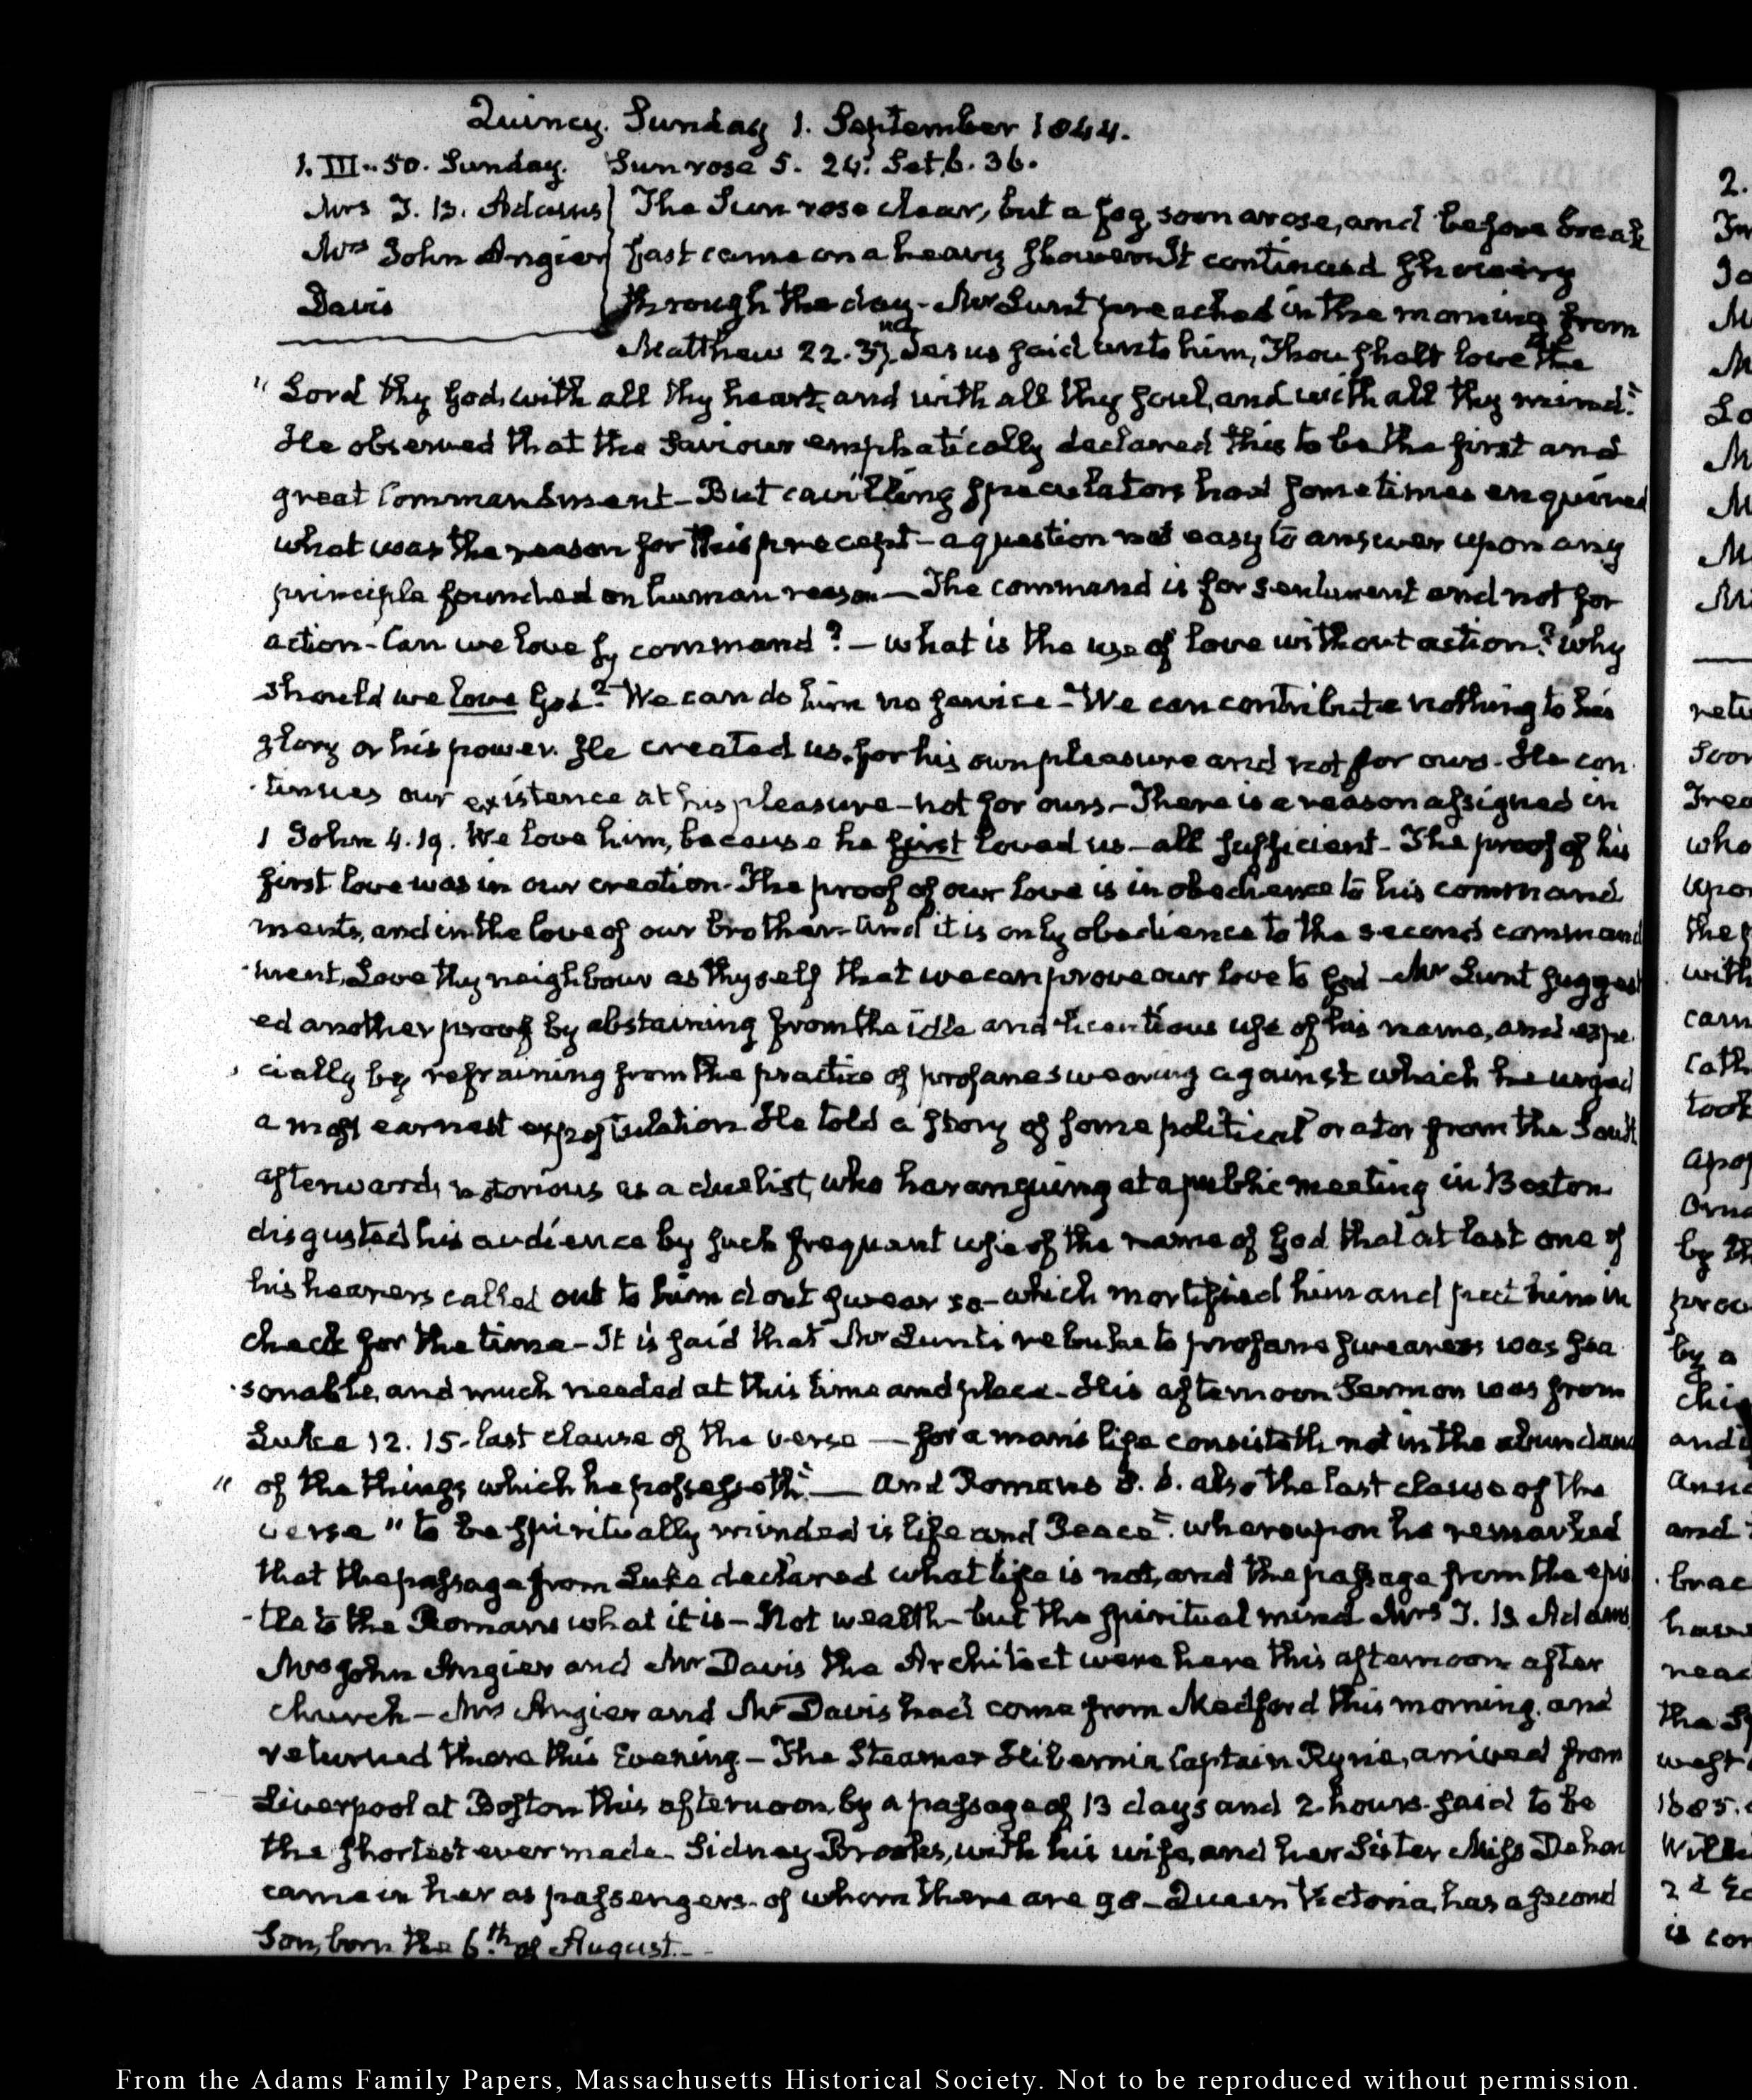 Quincy. Sunday 1. September 1844.
1. III..50. Sunday. Sun rose 5. 24. Set, 6. 36.
Mrs T. B. Adams The Sun rose clear, but a fog soon arose, and before break
Mrs John Angier fast came on a heavy shower. It continued showery
Davis through the day - Mr Lunt preached in the morning from
Matthew 22. 37. Jesus said unto him, Thou shalt love the
" Lord thy God, with all thy heart, and with all thy soul, and with all thy mind."
He observed that the Saviour emphatically declared this to be the first and
great Commandment - But cavilling speculators had sometimes enquired
what was the reason for this precept - a question not easy to answer upon any
principle founded on human reason - The command is for sentiment and not for
action - Can we love by command? - what is the use of love without action? why
should we love God? We can do him no service - We can contribute nothing to his
glory or his power. He created us, for his own pleasure and not for ours. He con
tinues our existence at his pleasure - not for ours - There is a reason assigned in
1 John 4. 19. We love him, because he first loved us - all sufficient - The proof of his
first love was in our creation. The proof of our love is in obedience to his command
ments, and in the love of our brother - And it is only obedience to the second command
-ment, Love thy neighbour as thyself that we can prove our love to God - Mr Lunt suggest
ed another proof by abstaining from the idle and licentious use of his name, and espe
cially by refraining from the practice of profane swearing against which he urged
a most earnest expostulation. He told a story of some political orator from the South
afterwards notorious as a duelist, who haranguing at a public meeting in Boston
disgusted his audience by such frequent use of the name of God that at last one of
his hearers called out to him dont swear so - which mortified him and put him in
check for the time - It is said that Mr Lunt's rebuke to profane swearers was sea
-sonable, and much needed at this time and place - His afternoon Sermon was from
Luke 12. 15. last clause of the verse — for a man's life consisteth not in the abundance
" of the things which he possesseth." — and Romans 8. 6. also the last clause of the
verse " to be spiritually minded is life and Peace". whereupon he remarked
that the passage from Luke declared what life is not, and the passage from the epis
-tle to the Romans what it is - Not wealth - but the spiritual mind. Mrs T. B. Adams
Mrs John Angier and Mr Davis the Architect were here this afternoon after
church - Mrs Angier and Mr Davis had come from Medford this morning, and
returned there this Evening - The Steamer Hibernia Captain Ryrie, arrived from
Liverpool at Boston this afternoon, by a passage of 13 days and 2 hours. said to be
the shortest ever made. Sidney Brooks, with his wife, and her Sister Miss Dehon
came in her as passengers. of whom there are 98 - Queen Victoria, has a second
Son, born the 6th of August. -
From the Adams Family Papers, Massachusetts Historical Society. Not to be reproduced without permission.